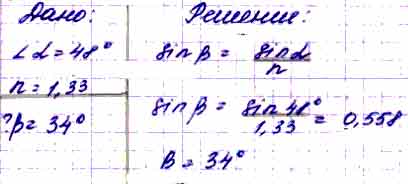 Дано:
∠α = 48°
n = 1,33
?β = 34°
Решение:
sin β = sin α / n
sin β = sin 48° / 1,33 = 0,558
β = 34°